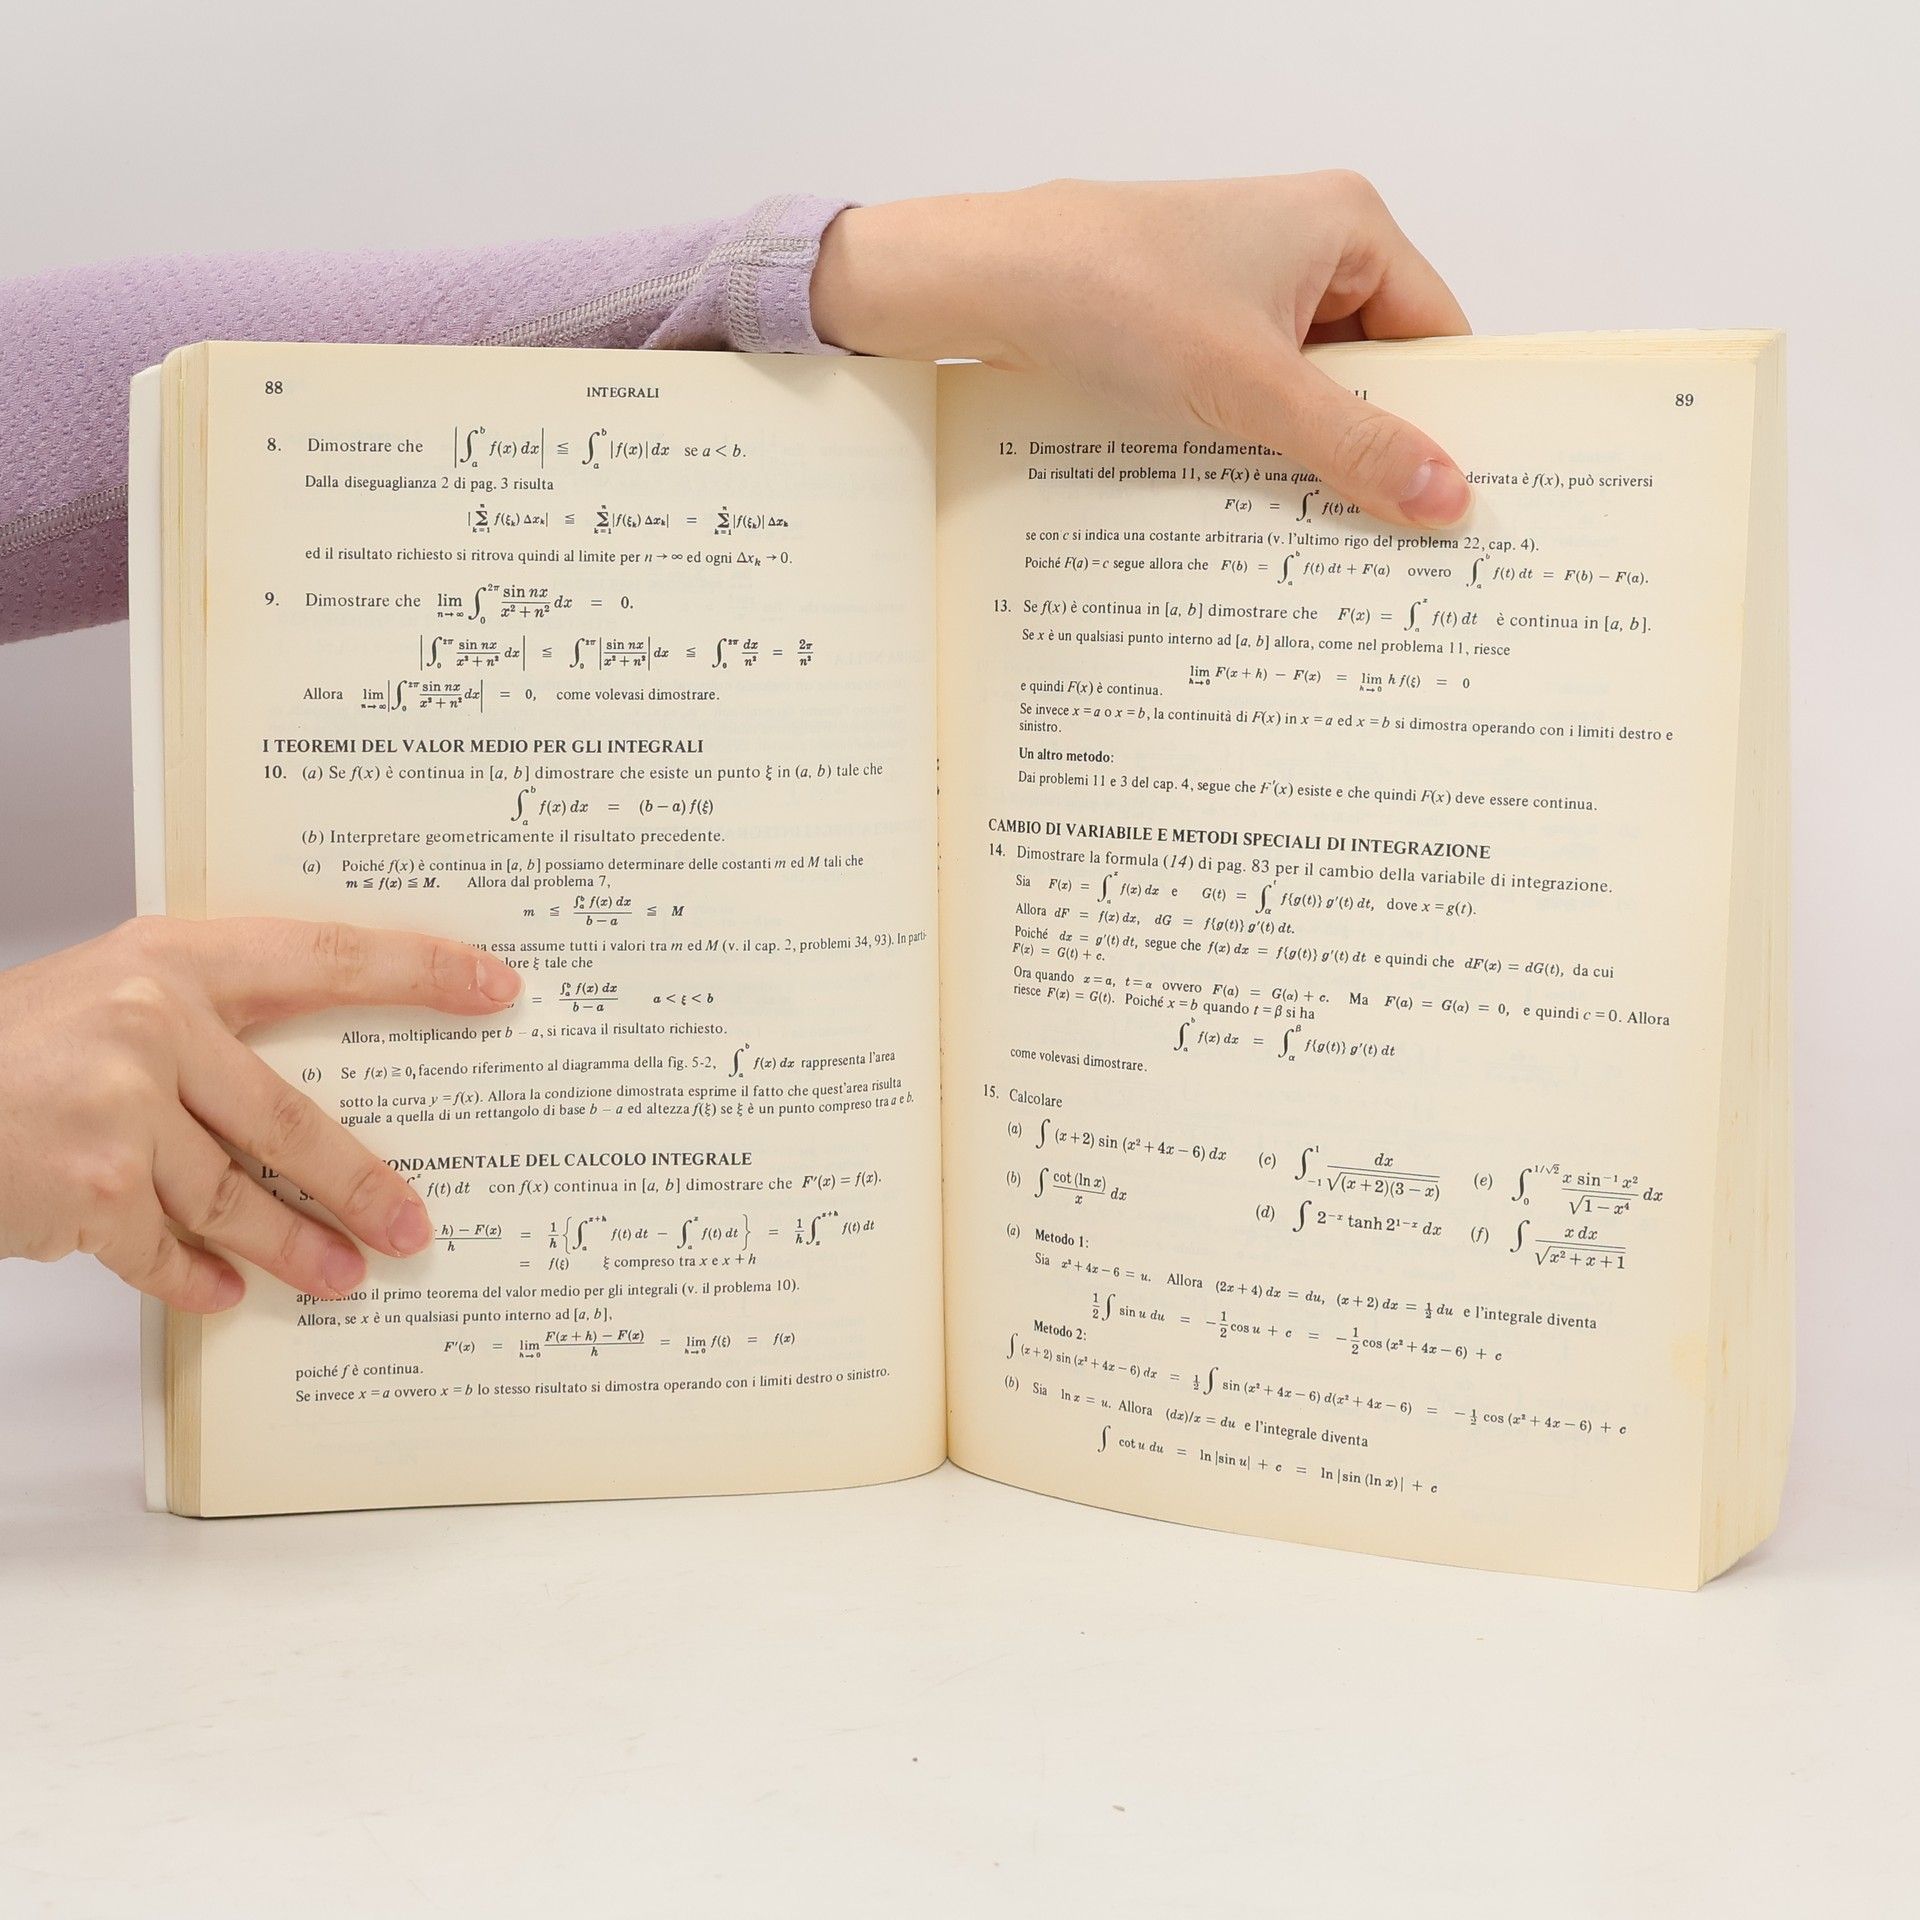 88
INTEGRALI
8. Dimostrare che |∫ₐᵇ f(x) dx| ≦ ∫ₐᵇ |f(x)| dx se a < b.
Dalla diseguaglianza 2 di pag. 3 risulta
|∑ₖ₌₁ⁿ f(ξₖ) Δxₖ| ≦ ∑ₖ₌₁ⁿ |f(ξₖ) Δxₖ| = ∑ₖ₌₁ⁿ |f(ξₖ)| Δxₖ
ed il risultato richiesto si ritrova quindi al limite per n → ∞ ed ogni Δxₖ → 0.
9. Dimostrare che lim n→∞ ∫₀^2π (sin nx)/(x² + n²) dx = 0.
|∫₀^2π (sin nx)/(x² + n²) dx| ≦ ∫₀^2π |(sin nx)/(x² + n²)| dx ≦ ∫₀^2π dx/n² = 2π/n²
Allora lim n→∞ |∫₀^2π (sin nx)/(x² + n²) dx| = 0, come volevasi dimostrare.
I TEOREMI DEL VALOR MEDIO PER GLI INTEGRALI
10. (a) Se f(x) è continua in [a, b] dimostrare che esiste un punto ξ in (a, b) tale che
∫ₐᵇ f(x) dx = (b − a) f(ξ)
(b) Interpretare geometricamente il risultato precedente.
(a) Poiché f(x) è continua in [a, b] possiamo determinare delle costanti m ed M tali che
m ≦ f(x) ≦ M. Allora dal problema 7,
m ≦ (∫ₐᵇ f(x) dx)/(b − a) ≦ M
essa assume tutti i valori tra m ed M (v. il cap. 2, problemi 34, 93). In parti-
ξ tale che
= (∫ₐᵇ f(x) dx)/(b − a) a < ξ < b
Allora, moltiplicando per b − a, si ricava il risultato richiesto.
(b) Se f(x) ≧ 0, facendo riferimento al diagramma della fig. 5-2, ∫ₐᵇ f(x) dx rappresenta l'area
sotto la curva y = f(x). Allora la condizione dimostrata esprime il fatto che quest'area risulta
uguale a quella di un rettangolo di base b − a ed altezza f(ξ) se ξ è un punto compreso tra a e b.
FONDAMENTALE DEL CALCOLO INTEGRALE
f(t) dt con f(x) continua in [a, b] dimostrare che F'(x) = f(x).
h) − F(x) / h = 1/h {∫ₐ^x+h f(t) dt − ∫ₐˣ f(t) dt} = 1/h ∫ₓ^x+h f(t) dt
= f(ξ) ξ compreso tra x e x + h
il primo teorema del valor medio per gli integrali (v. il problema 10).
Allora, se x è un qualsiasi punto interno ad [a, b],
F'(x) = lim h→0 (F(x + h) − F(x))/h = lim h→0 f(ξ) = f(x)
poiché f è continua.
Se invece x = a ovvero x = b lo stesso risultato si dimostra operando con i limiti destro o sinistro.
89
12. Dimostrare il teorema
Dai risultati del problema 11, se F(x) è una derivata è f(x), può scriversi
F(x) = ∫ₐˣ f(t) dt
se con c si indica una costante arbitraria (v. l'ultimo rigo del problema 22, cap. 4).
Poiché F(a) = c segue allora che F(b) = ∫ₐᵇ f(t) dt + F(a) ovvero ∫ₐᵇ f(t) dt = F(b) − F(a).
13. Se f(x) è continua in [a, b] dimostrare che F(x) = ∫ₐˣ f(t) dt è continua in [a, b].
Se x è un qualsiasi punto interno ad [a, b] allora, come nel problema 11, riesce
lim h→0 F(x + h) − F(x) = lim h→0 h f(ξ) = 0
e quindi F(x) è continua.
Se invece x = a o x = b, la continuità di F(x) in x = a ed x = b si dimostra operando con i limiti destro e
sinistro.
Un altro metodo:
Dai problemi 11 e 3 del cap. 4, segue che F'(x) esiste e che quindi F(x) deve essere continua.
CAMBIO DI VARIABILE E METODI SPECIALI DI INTEGRAZIONE
14. Dimostrare la formula (14) di pag. 83 per il cambio della variabile di integrazione.
Sia F(x) = ∫ₐˣ f(x) dx e G(t) = ∫_α^t f{g(t)} g'(t) dt, dove x = g(t).
Allora dF = f(x) dx, dG = f{g(t)} g'(t) dt.
Poiché dx = g'(t) dt, segue che f(x) dx = f{g(t)} g'(t) dt e quindi che dF(x) = dG(t), da cui
F(x) = G(t) + c.
Ora quando x = a, t = α ovvero F(a) = G(α) + c. Ma F(a) = G(α) = 0, e quindi c = 0. Allora
riesce F(x) = G(t). Poiché x = b quando t = β si ha
∫ₐᵇ f(x) dx = ∫_α^β f{g(t)} g'(t) dt
come volevasi dimostrare.
15. Calcolare
(a) ∫ (x + 2) sin (x² + 4x − 6) dx (c) ∫₋₁¹ dx/√((x + 2)(3 − x)) (e) ∫₀^1/√2 (x sin⁻¹ x²)/√(1 − x⁴) dx
(b) ∫ (cot (ln x))/x dx (d) ∫ 2⁻ˣ tanh 2¹⁻ˣ dx (f) ∫ x dx/√(x² + x + 1)
(a) Metodo 1:
Sia x² + 4x − 6 = u. Allora (2x + 4) dx = du, (x + 2) dx = ½ du e l'integrale diventa
1/2 ∫ sin u du = −1/2 cos u + c = −1/2 cos (x² + 4x − 6) + c
Metodo 2:
∫ (x + 2) sin (x² + 4x − 6) dx = ½ ∫ sin (x² + 4x − 6) d(x² + 4x − 6) = −½ cos (x² + 4x − 6) + c
(b) Sia ln x = u. Allora (dx)/x = du e l'integrale diventa
∫ cot u du = ln |sin u| + c = ln |sin (ln x)| + c